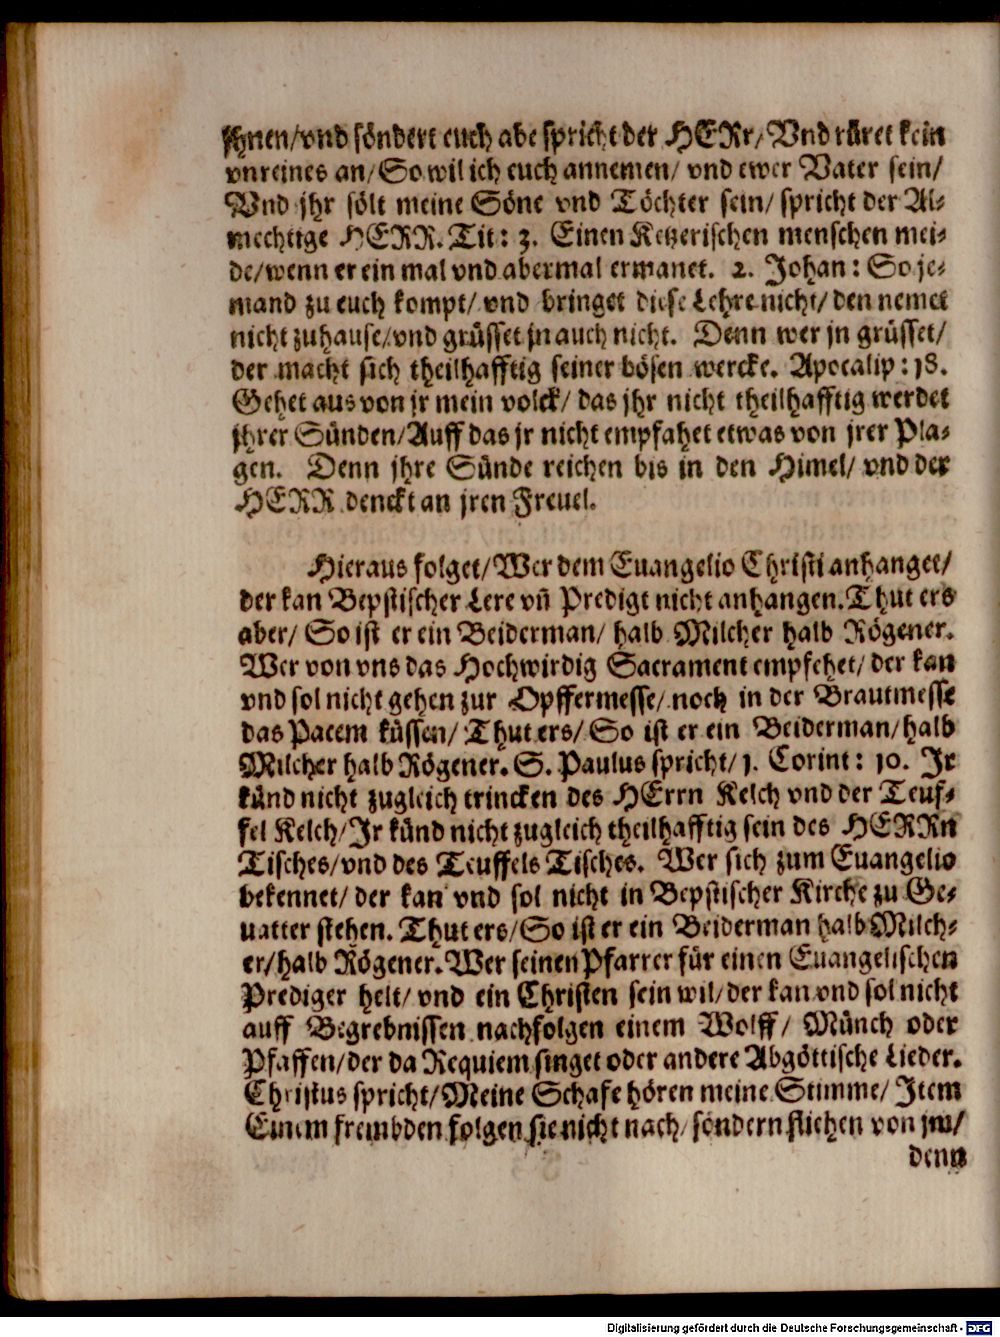 jhnen/vnd söndert euch abe spricht der HERr/Vnd rüret kein
vnreines an/So wil ich euch annemen/ vnd ewer Vater sein/
Vnd jhr sölt meine Söne vnd Töchter sein/ spricht der Al-
mechtige HERR. Tit: 3. Einen Ketzerischen menschen mei-
de/wenn er ein mal vnd abermal ermanet. 2. Johan: So je-
mand zu euch kompt/ vnd bringet diese Lehre nicht/ den nemet
nicht zuhause/vnd grüsset jn auch nicht. Denn wer jn grüsset/
der macht sich theilhafftig seiner bösen wercke. Apocalip: 18.
Gehet aus von jr mein volck/ das jhr nicht theilhafftig werdet
jhrer Sünden/Auff das jr nicht empfahet etwas von jrer Pla-
gen. Denn jhre Sünde reichen bis in den Himel/ vnd der
HERR denckt an jren Freuel.
Hieraus folget/Wer dem Euangelio Christi anhanget/
der kan Bepstischer Lere vñ Predigt nicht anhangen. Thut ers
aber/ So ist er ein Beiderman/ halb Milcher halb Rögener.
Wer von vns das Hochwirdig Sacrament empfehet/ der kan
vnd sol nicht gehen zur Opffermesse/ noch in der Brautmesse
das Pacem küssen/ Thut ers/ So ist er ein Beiderman/halb
Milcher halb Rögener. S. Paulus spricht/1. Corint: 10. Jr
künd nicht zugleich trincken des HErrn Kelch vnd der Teuf-
fel Kelch/Jr künd nicht zugleich theilhafftig sein des HERRn
Tisches/vnd des Teuffels Tisches. Wer sich zum Euangelio
bekennet/ der kan vnd sol nicht in Bepstischer Kirche zu Ge-
uatter stehen. Thut ers/So ist er ein Beiderman halb Milch-
er/halb Rögener. Wer seinen Pfarrer für einen Euangelischen
Prediger helt/ vnd ein Christen sein wil/der kan vnd sol nicht
auff Begrebnissen nachfolgen einem Wolff/ Münch oder
Pfaffen/der da Requiem singet oder andere Abgöttische Lieder.
Christus spricht/Meine Schafe hören meine Stimme/ Item
Einem frembden folgen sie nicht nach/ söndern fliehen von jm/
denn
Digitalisierung gefördert durch die Deutsche Forschungsgemeinschaft - DFG